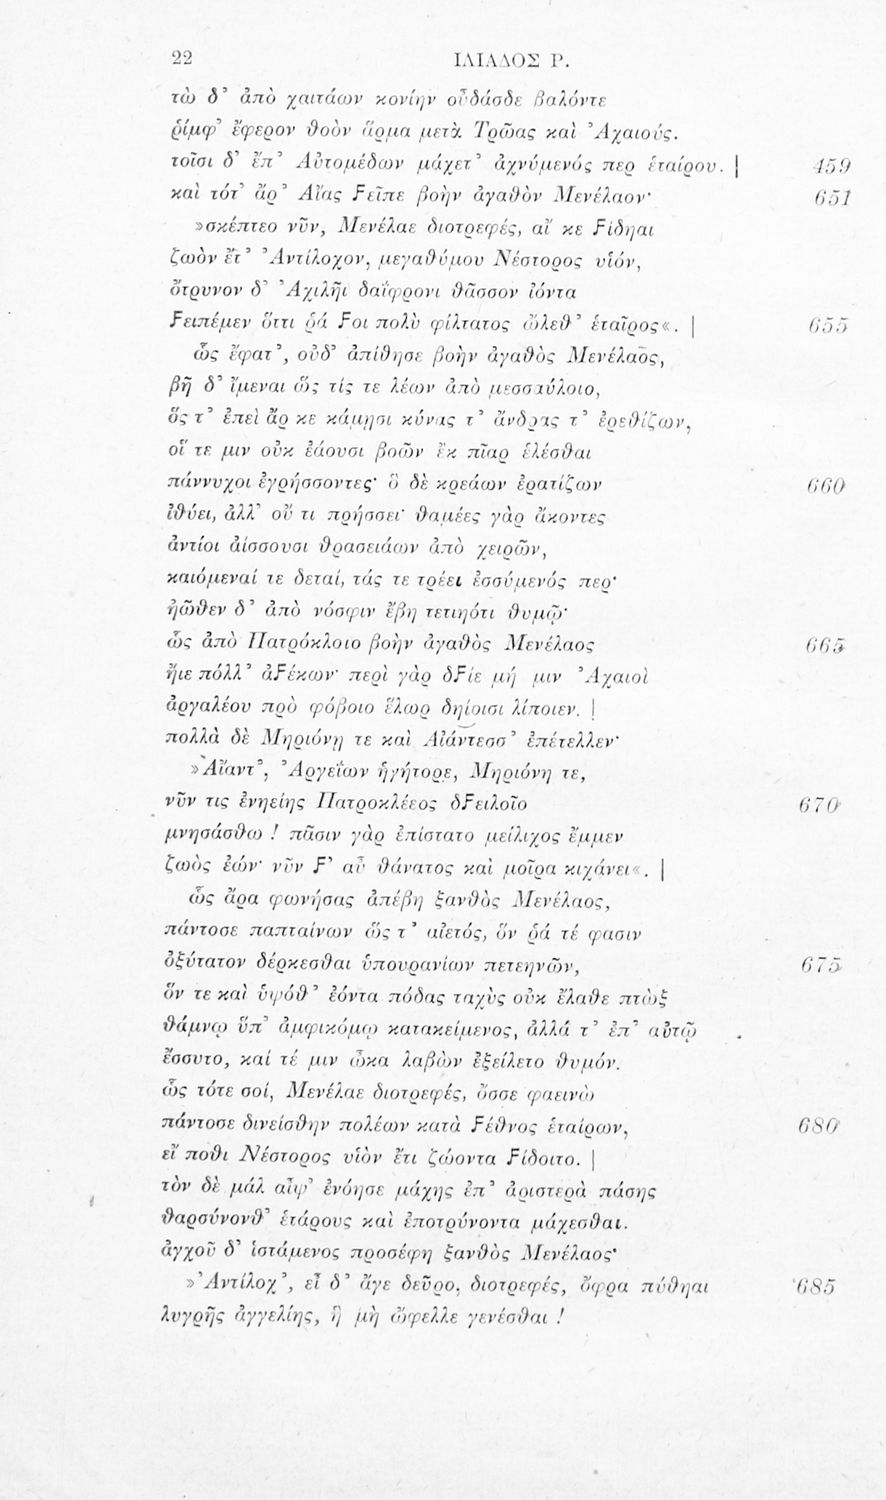 22 ΙΛΙΑΔΟΣ Ρ.
τὼ δ᾽ ἀπὸ χαιτάων κονίην οὖδάσδε βαλόντε
ῥίμφ᾽ ἔφερον θοὸν ἅρμα μετὰ Τρῶας καὶ Ἀχαιούς.
τοῖσι δ᾽ ἔπ᾽ Αὐτομέδων μάχετ᾽ ἀχνύμενός περ ἑταίρου. | 459
καὶ τότ᾽ ἄρ᾽ Αἴας Ϝεῖπε βοὴν ἀγαθὸν Μενέλαον· 651
»σκέπτεο νῦν, Μενέλαε διοτρεφές, αἴ κε Ϝίδηαι
ζωὸν ἔτ᾽ Ἀντίλοχον, μεγαθύμου Νέστορος υἱόν,
ὄτρυνον δ᾽ Ἀχιλῆι δαΐφρονι θᾶσσον ἰόντα
Ϝειπέμεν ὅττι ῥά Ϝοι πολὺ φίλτατος ὤλεθ᾽ ἑταῖρος«. | 655
ὣς ἔφατ᾽, οὐδ᾽ ἀπίθησε βοὴν ἀγαθὸς Μενέλαος,
βῆ δ᾽ ἴμεναι ὥς τίς τε λέων ἀπὸ μεσσαύλοιο,
ὅς τ᾽ ἐπεὶ ἄρ κε κάμῃσι κύνας τ᾽ ἄνδρας τ᾽ ἐρεθίζων,
οἵ τε μιν οὐκ ἐάουσι βοῶν ἐκ πῖαρ ἑλέσθαι
πάννυχοι ἐγρήσσοντες· ὃ δὲ κρεάων ἐρατίζων 660
ἰθύει, ἀλλ᾽ οὔ τι πρήσσει· θαμέες γὰρ ἄκοντες
ἀντίοι ἀίσσουσι θρασειάων ἀπὸ χειρῶν,
καιόμεναί τε δεταί, τάς τε τρέει ἐσσύμενός περ·
ἠῶθεν δ᾽ ἀπὸ νόσφιν ἔβη τετιηότι θυμῷ·
ὣς ἀπὸ Πατρόκλοιο βοὴν ἀγαθὸς Μενέλαος 665
ἤιε πόλλ᾽ ἀϜέκων· περὶ γὰρ δϜίε μή μιν Ἀχαιοὶ
ἀργαλέου πρὸ φόβοιο ἕλωρ δηίοισι λίποιεν. |
πολλὰ δὲ Μηριόνῃ τε καὶ Αἰάντεσσ᾽ ἐπέτελλεν·
»Αἴαντ᾽, Ἀργεΐων ἡγήτορε, Μηριόνη τε,
νῦν τις ἐνηείης Πατροκλέεος δϜειλοῖο 670
μνησάσθω! πᾶσιν γὰρ ἐπίστατο μείλιχος ἔμμεν
ζωὸς ἐών· νῦν Ϝ᾽ αὖ θάνατος καὶ μοῖρα κιχάνει«. |
ὣς ἄρα φωνήσας ἀπέβη ξανθὸς Μενέλαος,
πάντοσε παπταίνων ὥς τ᾽ αἰετός, ὅν ῥά τέ φασιν
ὀξύτατον δέρκεσθαι ὑπουρανίων πετεηνῶν, 675
ὅν τε καὶ ὑψόθ᾽ ἐόντα πόδας ταχὺς οὐκ ἔλαθε πτὼξ
θάμνῳ ὕπ᾽ ἀμφικόμῳ κατακείμενος, ἀλλά τ᾽ ἐπ᾽ αὐτῷ
ἔσσυτο, καί τέ μιν ὦκα λαβὼν ἐξείλετο θυμόν.
ὣς τότε σοί, Μενέλαε διοτρεφές, ὄσσε φαεινὼ
πάντοσε δινείσθην πολέων κατὰ Ϝέθνος ἑταίρων, 680
εἴ ποθι Νέστορος υἱὸν ἔτι ζώοντα Ϝίδοιτο. |
τὸν δὲ μάλ αἶψ᾽ ἐνόησε μάχης ἐπ᾽ ἀριστερὰ πάσης
θαρσύνονθ᾽ ἑτάρους καὶ ἐποτρύνοντα μάχεσθαι.
ἀγχοῦ δ᾽ ἱστάμενος προσέφη ξανθὸς Μενέλαος·
»Ἀντίλοχ᾽, εἶ δ᾽ ἄγε δεῦρο, διοτρεφές, ὄφρα πύθηαι 685
λυγρῆς ἀγγελίης, ἣ μὴ ὤφελλε γενέσθαι!